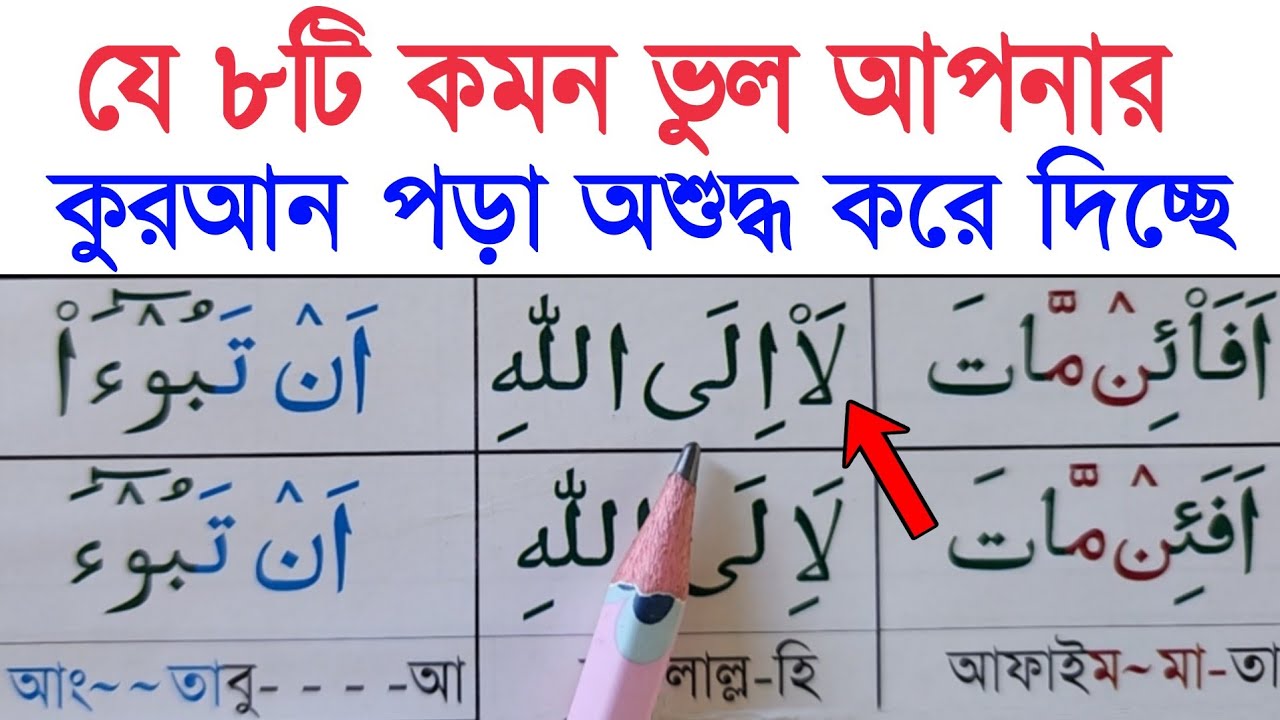 যে ৮টি কমন ভুল আপনার
কুরআন পড়া অশুদ্ধ করে দিচ্ছে
اَفَاْئِنْ مَّاتَ لَاْ اِلَى اللّٰهِ اَنْ تَبُوْٓءَاْ
اَفَئِنْ مَّاتَ لَاِلَى اللّٰهِ اَنْ تَبُوْٓءَ
আং~~তাবু- - - -আ লাল্ল-হি আফাইম~ মা-তা